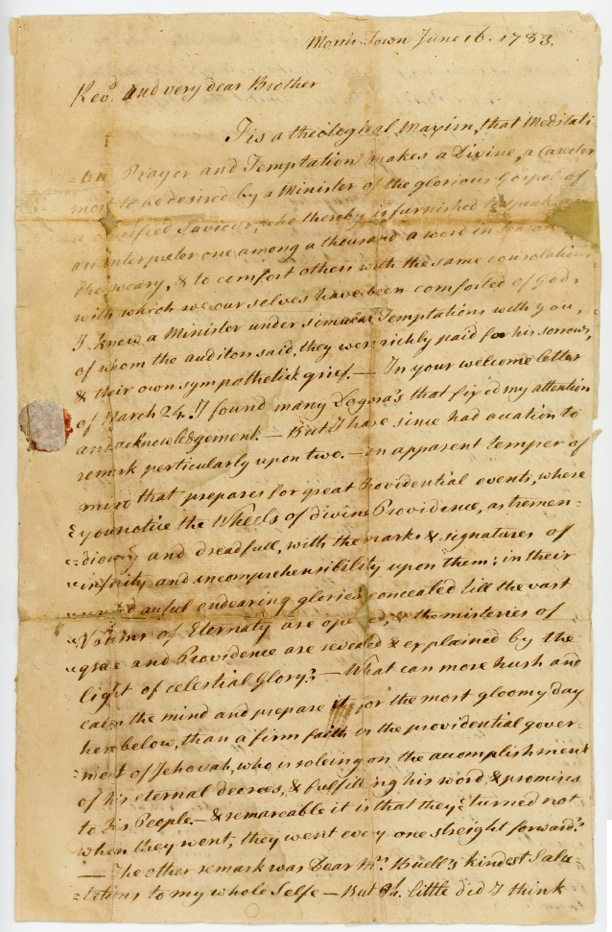 Morris Town June 16. 1783.
Revd. and very dear Brother
Tis a theological Maxim, that Meditati-
-on Prayer and Temptation makes a Divine, a Caracter
more to be desired by a Minister of the glorious Gospel of
a crucified Saviour, who thereby is furnished to speak as
an interpreter one among a thousand a word in season to
the weary, & to comfort others with the same consolations
with which we our selves have been comforted of God,
I knew a Minister under similar Temptations with you,
of whom the auditors said, they were richly paid for his sorrows,
& their own sympathetick grief. — In your welcome letter
of March 24. I found many that fixed my attention
and acknowledgement. — But I have since had ocation to
remark particularly upon two. — an apparent temper of
mind that prepares for great Providential events, where
you notice the Wheels of divine Providence, as tremen-
-diously and dreadfull, with the marks & signatures of
infinity and incomprehensibility upon them; in their
awful endearing glories concealed till the vast
Volums of Eternaty are opened, & the misteries of
grace and Providence are revealed & explained by the
light of celestial glory? — What can more hush and
calm the mind and prepare it for the most gloomy day
here below, than a firm faith in the providential gover-
-ment of Jehovah, who is roleing on the accomplishment
of his eternal decrees, & fulfilling his word, & promises
to his People. — & remarkable it is that they turned not
when they went; they went every one streight forward?
— The other remark was Dear Mrs. Buell's kindest Salu-
-tations to my whole Selfe — But Oh. little did I think